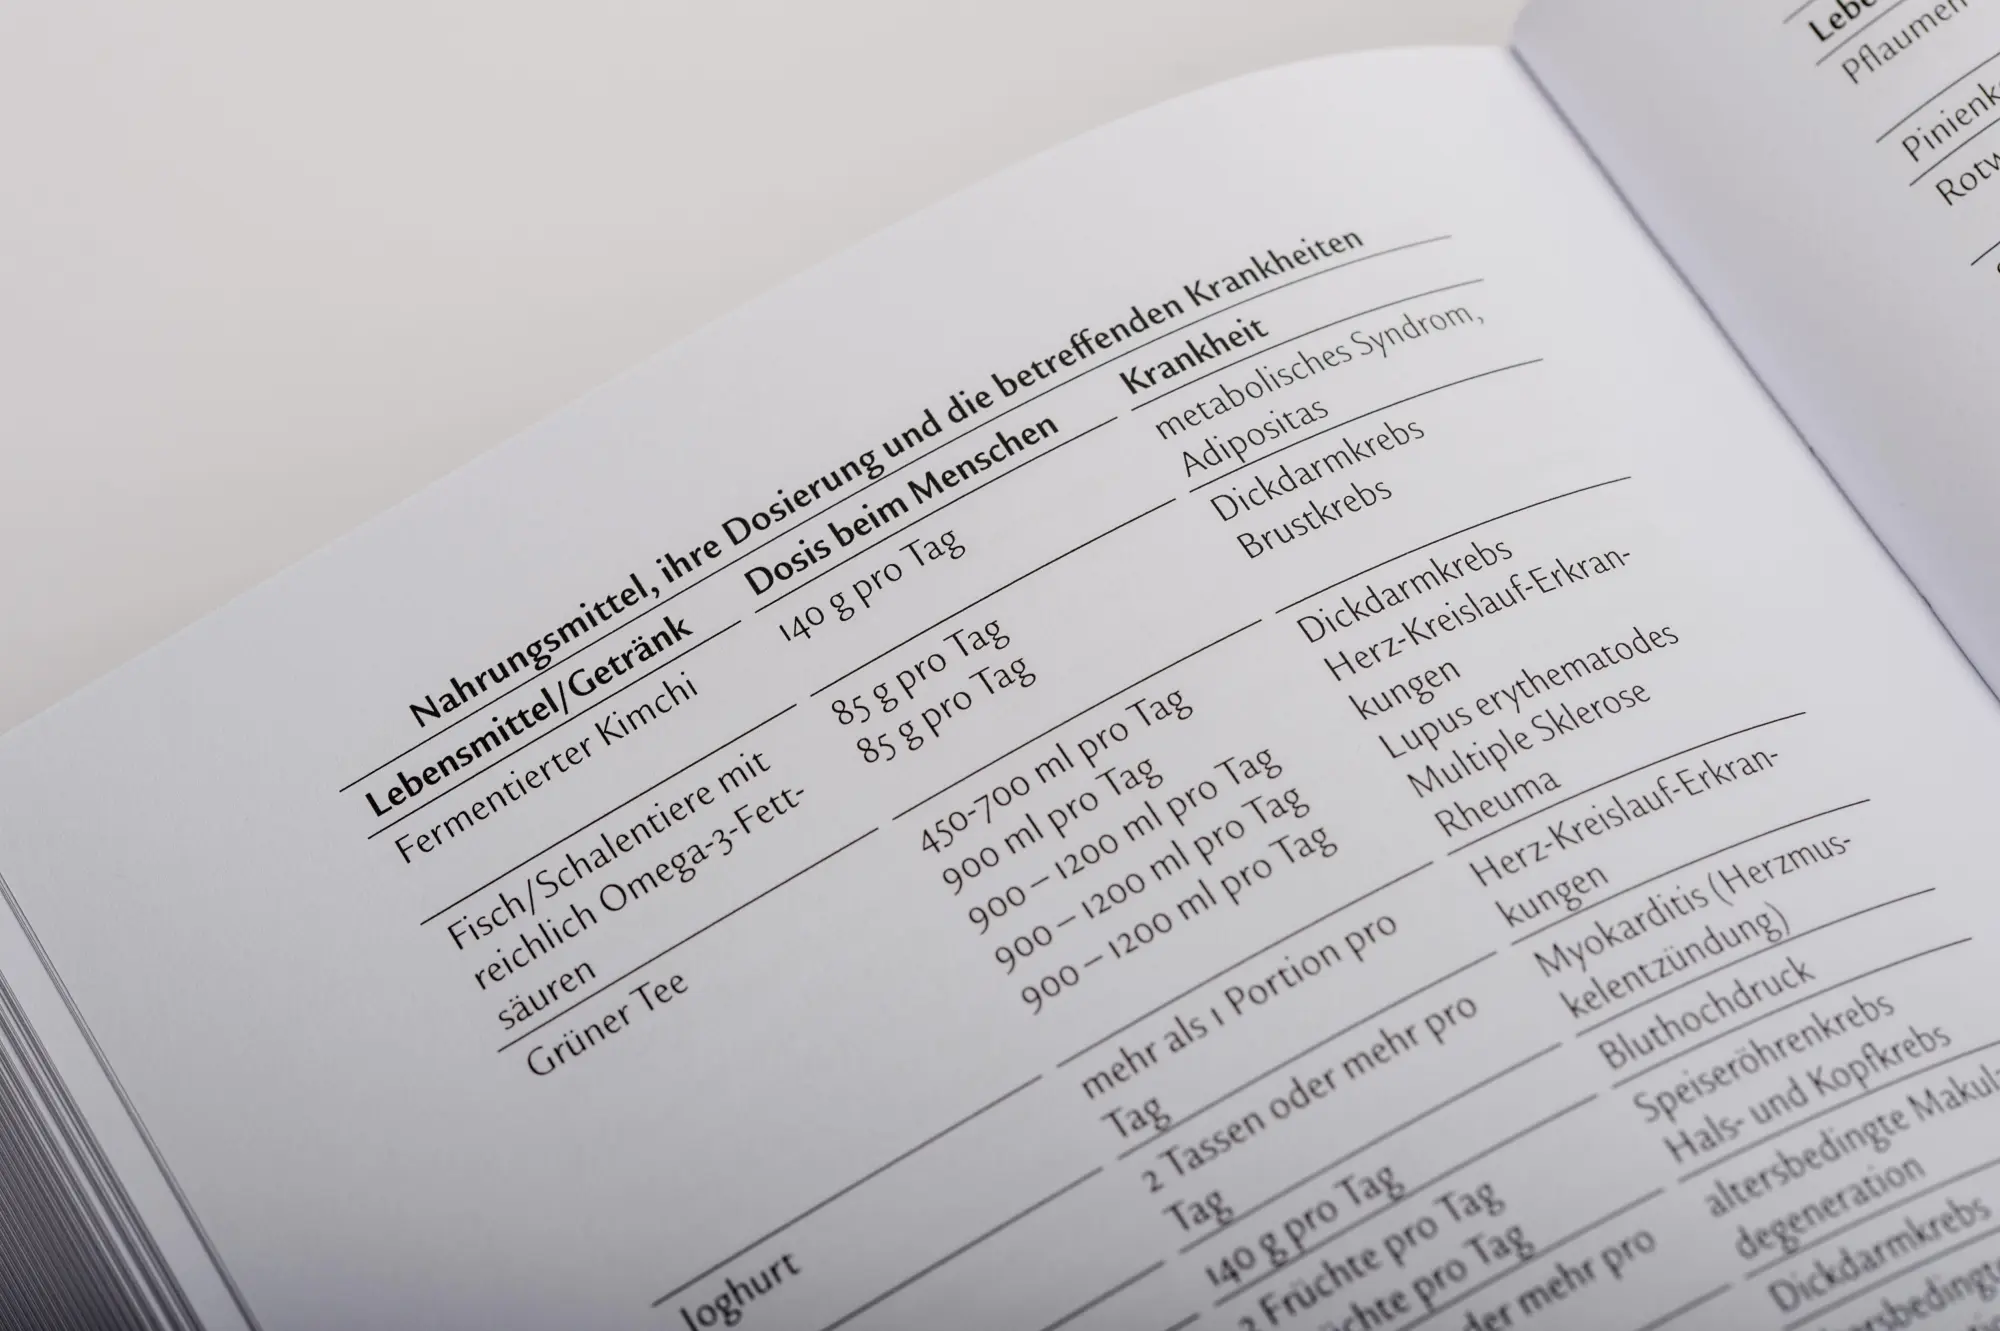 Nahrungsmittel, ihre Dosierung und die betreffenden Krankheiten
Lebensmittel/Getränk Dosis beim Menschen Krankheit
Fermentierter Kimchi 140 g pro Tag metabolisches Syndrom,
Adipositas
Fisch/Schalentiere mit 85 g pro Tag Dickdarmkrebs
reichlich Omega-3-Fett- 85 g pro Tag Brustkrebs
säuren
Grüner Tee 450-700 ml pro Tag Dickdarmkrebs
900 ml pro Tag Herz-Kreislauf-Erkran-
kungen
900 – 1200 ml pro Tag Lupus erythematodes
900 – 1200 ml pro Tag Multiple Sklerose
900 – 1200 ml pro Tag Rheuma
Joghurt mehr als 1 Portion pro Herz-Kreislauf-Erkran-
Tag kungen
2 Tassen oder mehr pro Myokarditis (Herzmus-
Tag kelentzündung)
140 g pro Tag Bluthochdruck
Früchte pro Tag Speiseröhrenkrebs
pro Tag Hals- und Kopfkrebs
mehr pro altersbedingte
degeneration
Dickdarmkrebs
Pflaumen